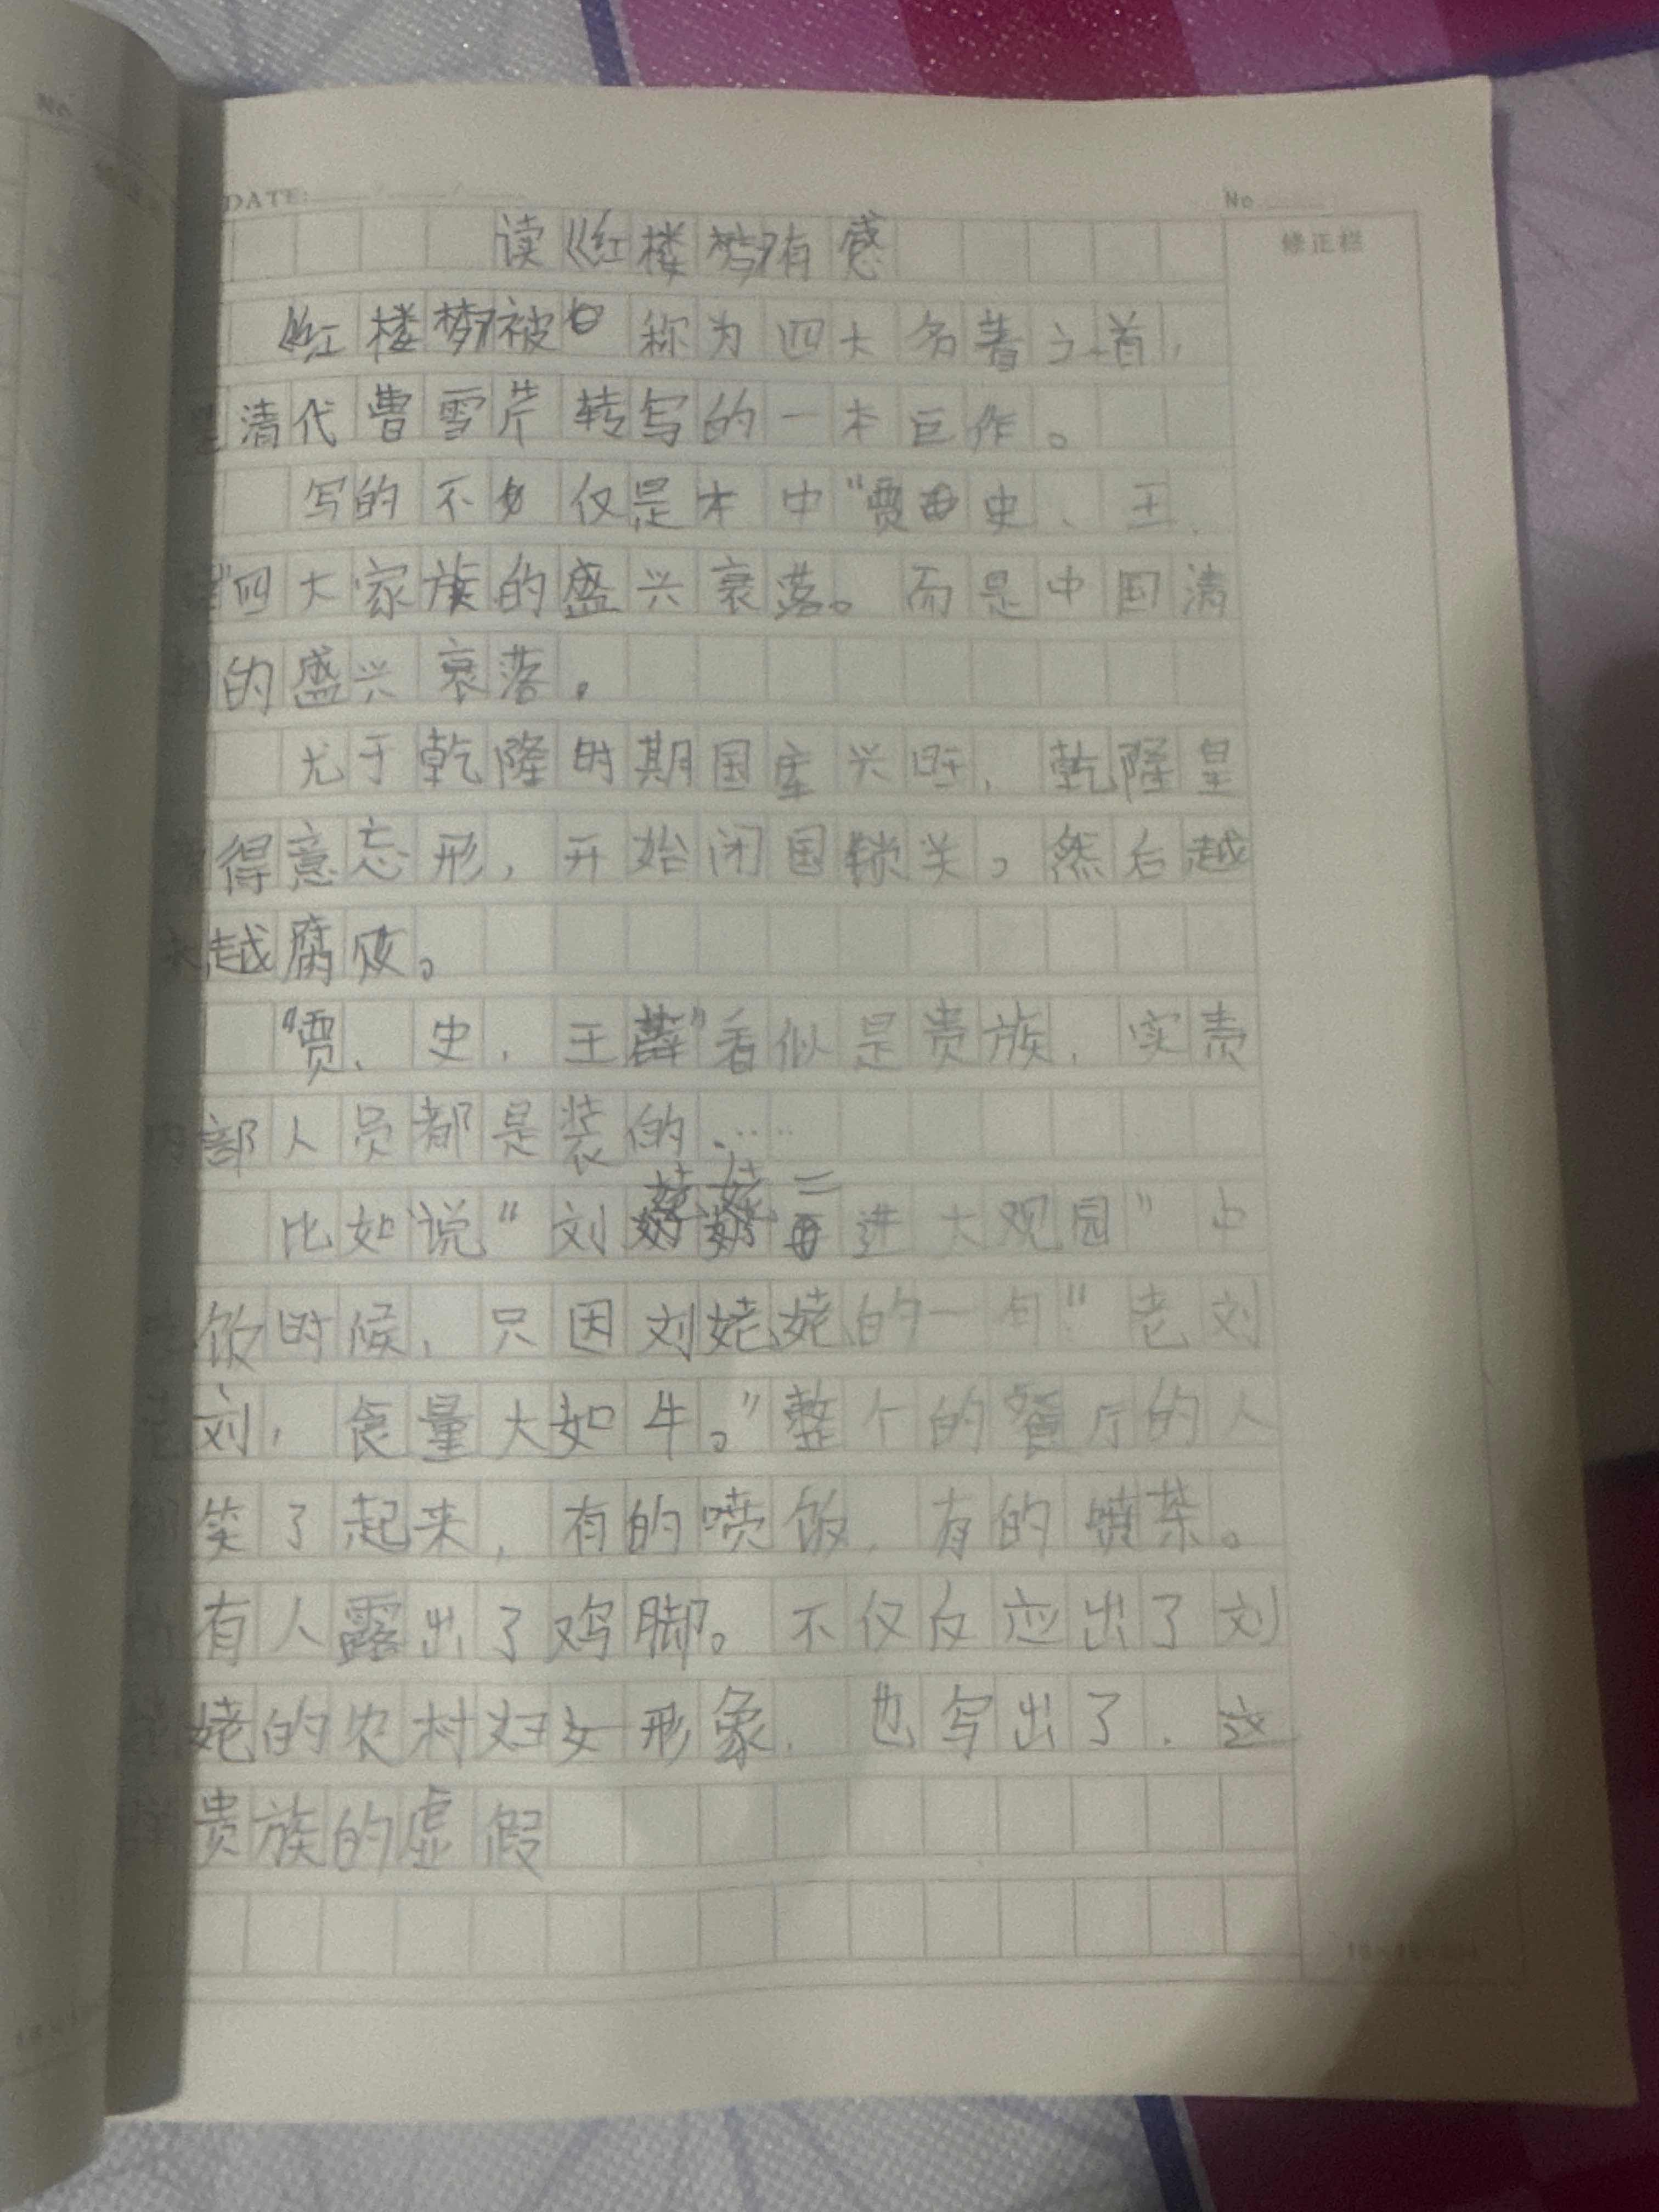 DATE: / /
No
修正栏
读《红楼梦》有感
《红楼梦》被称为四大名著之首，
是清代曹雪芹转写的一本巨作。
写的不仅仅是本中“贾、史、王、
四大家族的盛兴衰落。而是中国清
的盛兴衰落。
尤于乾隆时期国库兴旺，乾隆皇
得意忘形，开始闭国锁关。然后越
来越腐败。
“贾、史，王薛”看似是贵族，实责
内部人员都是装的……
比如说“刘姥姥二进大观园”中
饭时候，只因刘姥姥的一句“老刘
老刘，食量大如牛。”整个的餐厅的人
都笑了起来，有的喷饭，有的喷茶。
有人露出了鸡脚。不仅反应出了刘
姥的农村妇女形象，也写出了，这
贵族的虚假